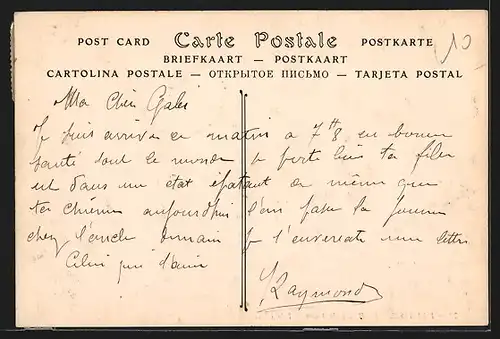 10
POST CARD Carte Postale POSTKARTE
BRIEFKAART — POSTKAART
CARTOLINA POSTALE — ОТКРЫТОЕ ПИСЬМО — TARJETA POSTAL
Ma Chère Gabi
Je suis arrivé ce matin a 7 H en bonne
santé tout le monde se porte bien ta
est dans un état épatant de même que
ta chienne aujourd'hui passer la
chez l'oncle demain je t'enverrai une lettre
Celui qui t'aime
Raymond